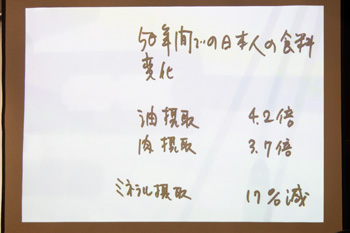 50年間での日本人の食料
変化
油摂取 4.2倍
肉摂取 3.7倍
ミネラル摂取 17%減